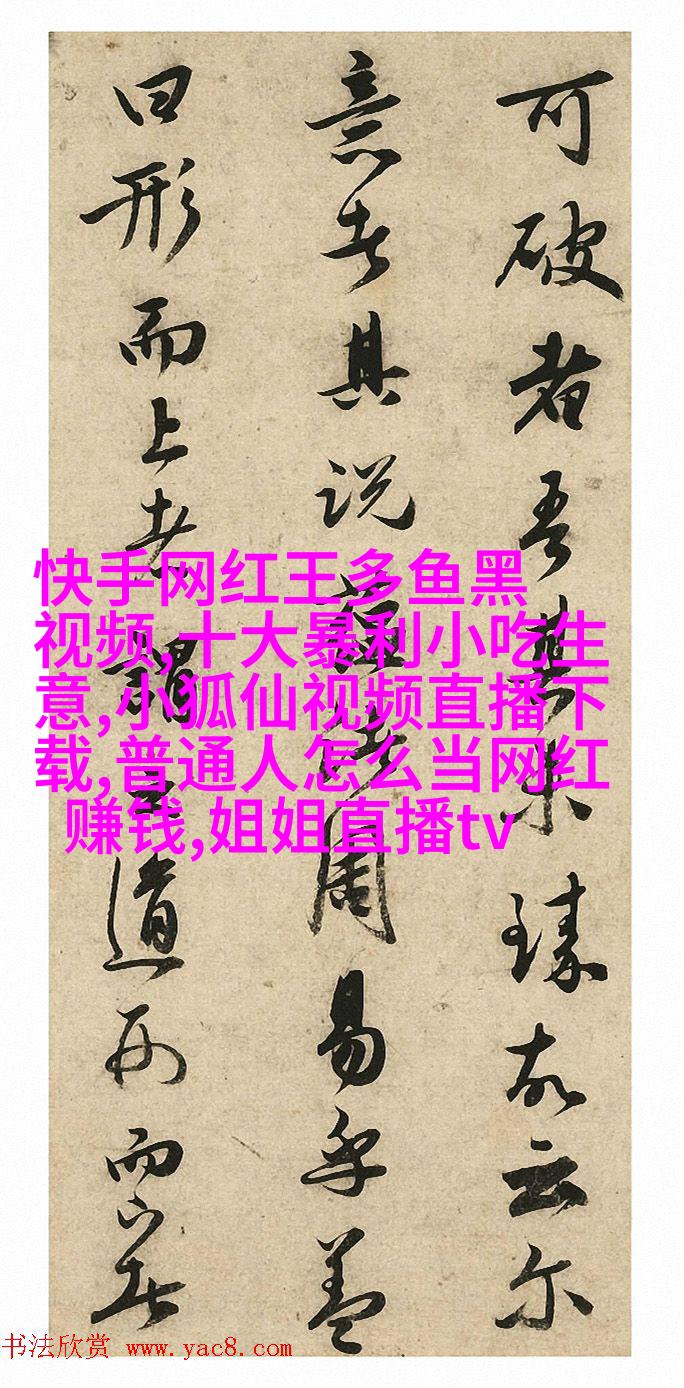 可破者吾未臻故云尔
意者其说周易乎盖
曰形而上者謂之道形而下者
快手网红王多鱼黑
视频,十大暴利小吃生
意,小狐仙视频直播下
载,普通人怎么当网红
赚钱,姐姐直播tv
书法欣赏 www.yac8.com